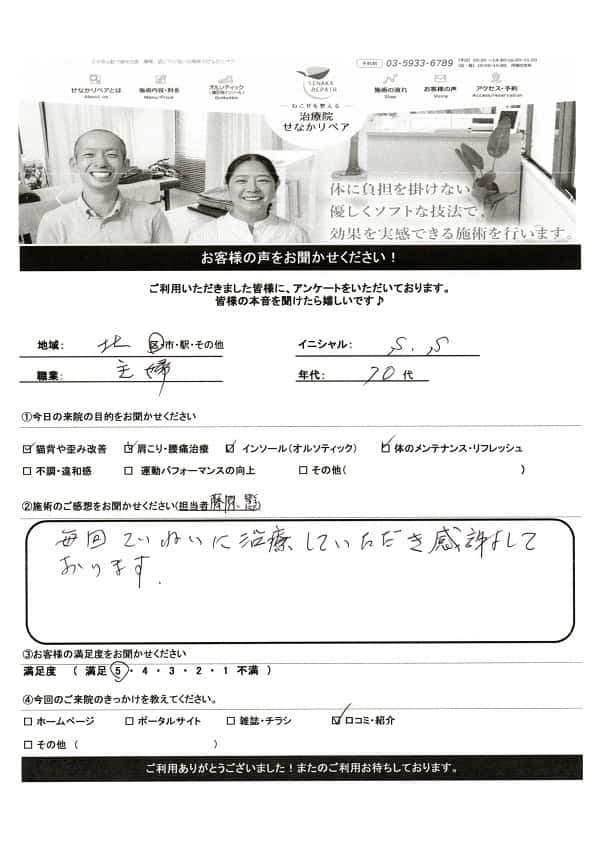 予約制 03-5933-6789
SENAKA REPAIR
せなかリペアとは 施術内容・料金 オルソティック 施術の流れ お客様の声 アクセス・予約
About us Menu/Price Orthotics Flow Voice Access/reservation
ねこぜを整える
治療院
せなかリペア
体に負担を掛けない
優しくソフトな技法で、
効果を実感できる施術を行います。
お客様の声をお聞かせください！
ご利用いただきました皆様に、アンケートをいただいております。
皆様の本音を聞けたら嬉しいです♪
地域： 北 区・市・駅・その他 イニシャル： S.S
職業： 主婦 年代： 70代
①今日の来院の目的をお聞かせください
☑猫背や歪み改善 ☑肩こり・腰痛治療 ☑インソール（オルソティック） ☑体のメンテナンス・リフレッシュ
□不調・違和感 □運動パフォーマンスの向上 □その他（ ）
②施術のご感想をお聞かせください（担当者 藤原 ）
毎回ていねいに治療していただき感謝して
おります．
③お客様の満足度をお聞かせください
満足度 （ 満足 5・4・3・2・1 不満 ）
④今回のご来院のきっかけを教えてください。
□ホームページ □ポータルサイト □雑誌・チラシ ☑口コミ・紹介
□その他（ ）
ご利用ありがとうございました！またのご利用お待ちしております。